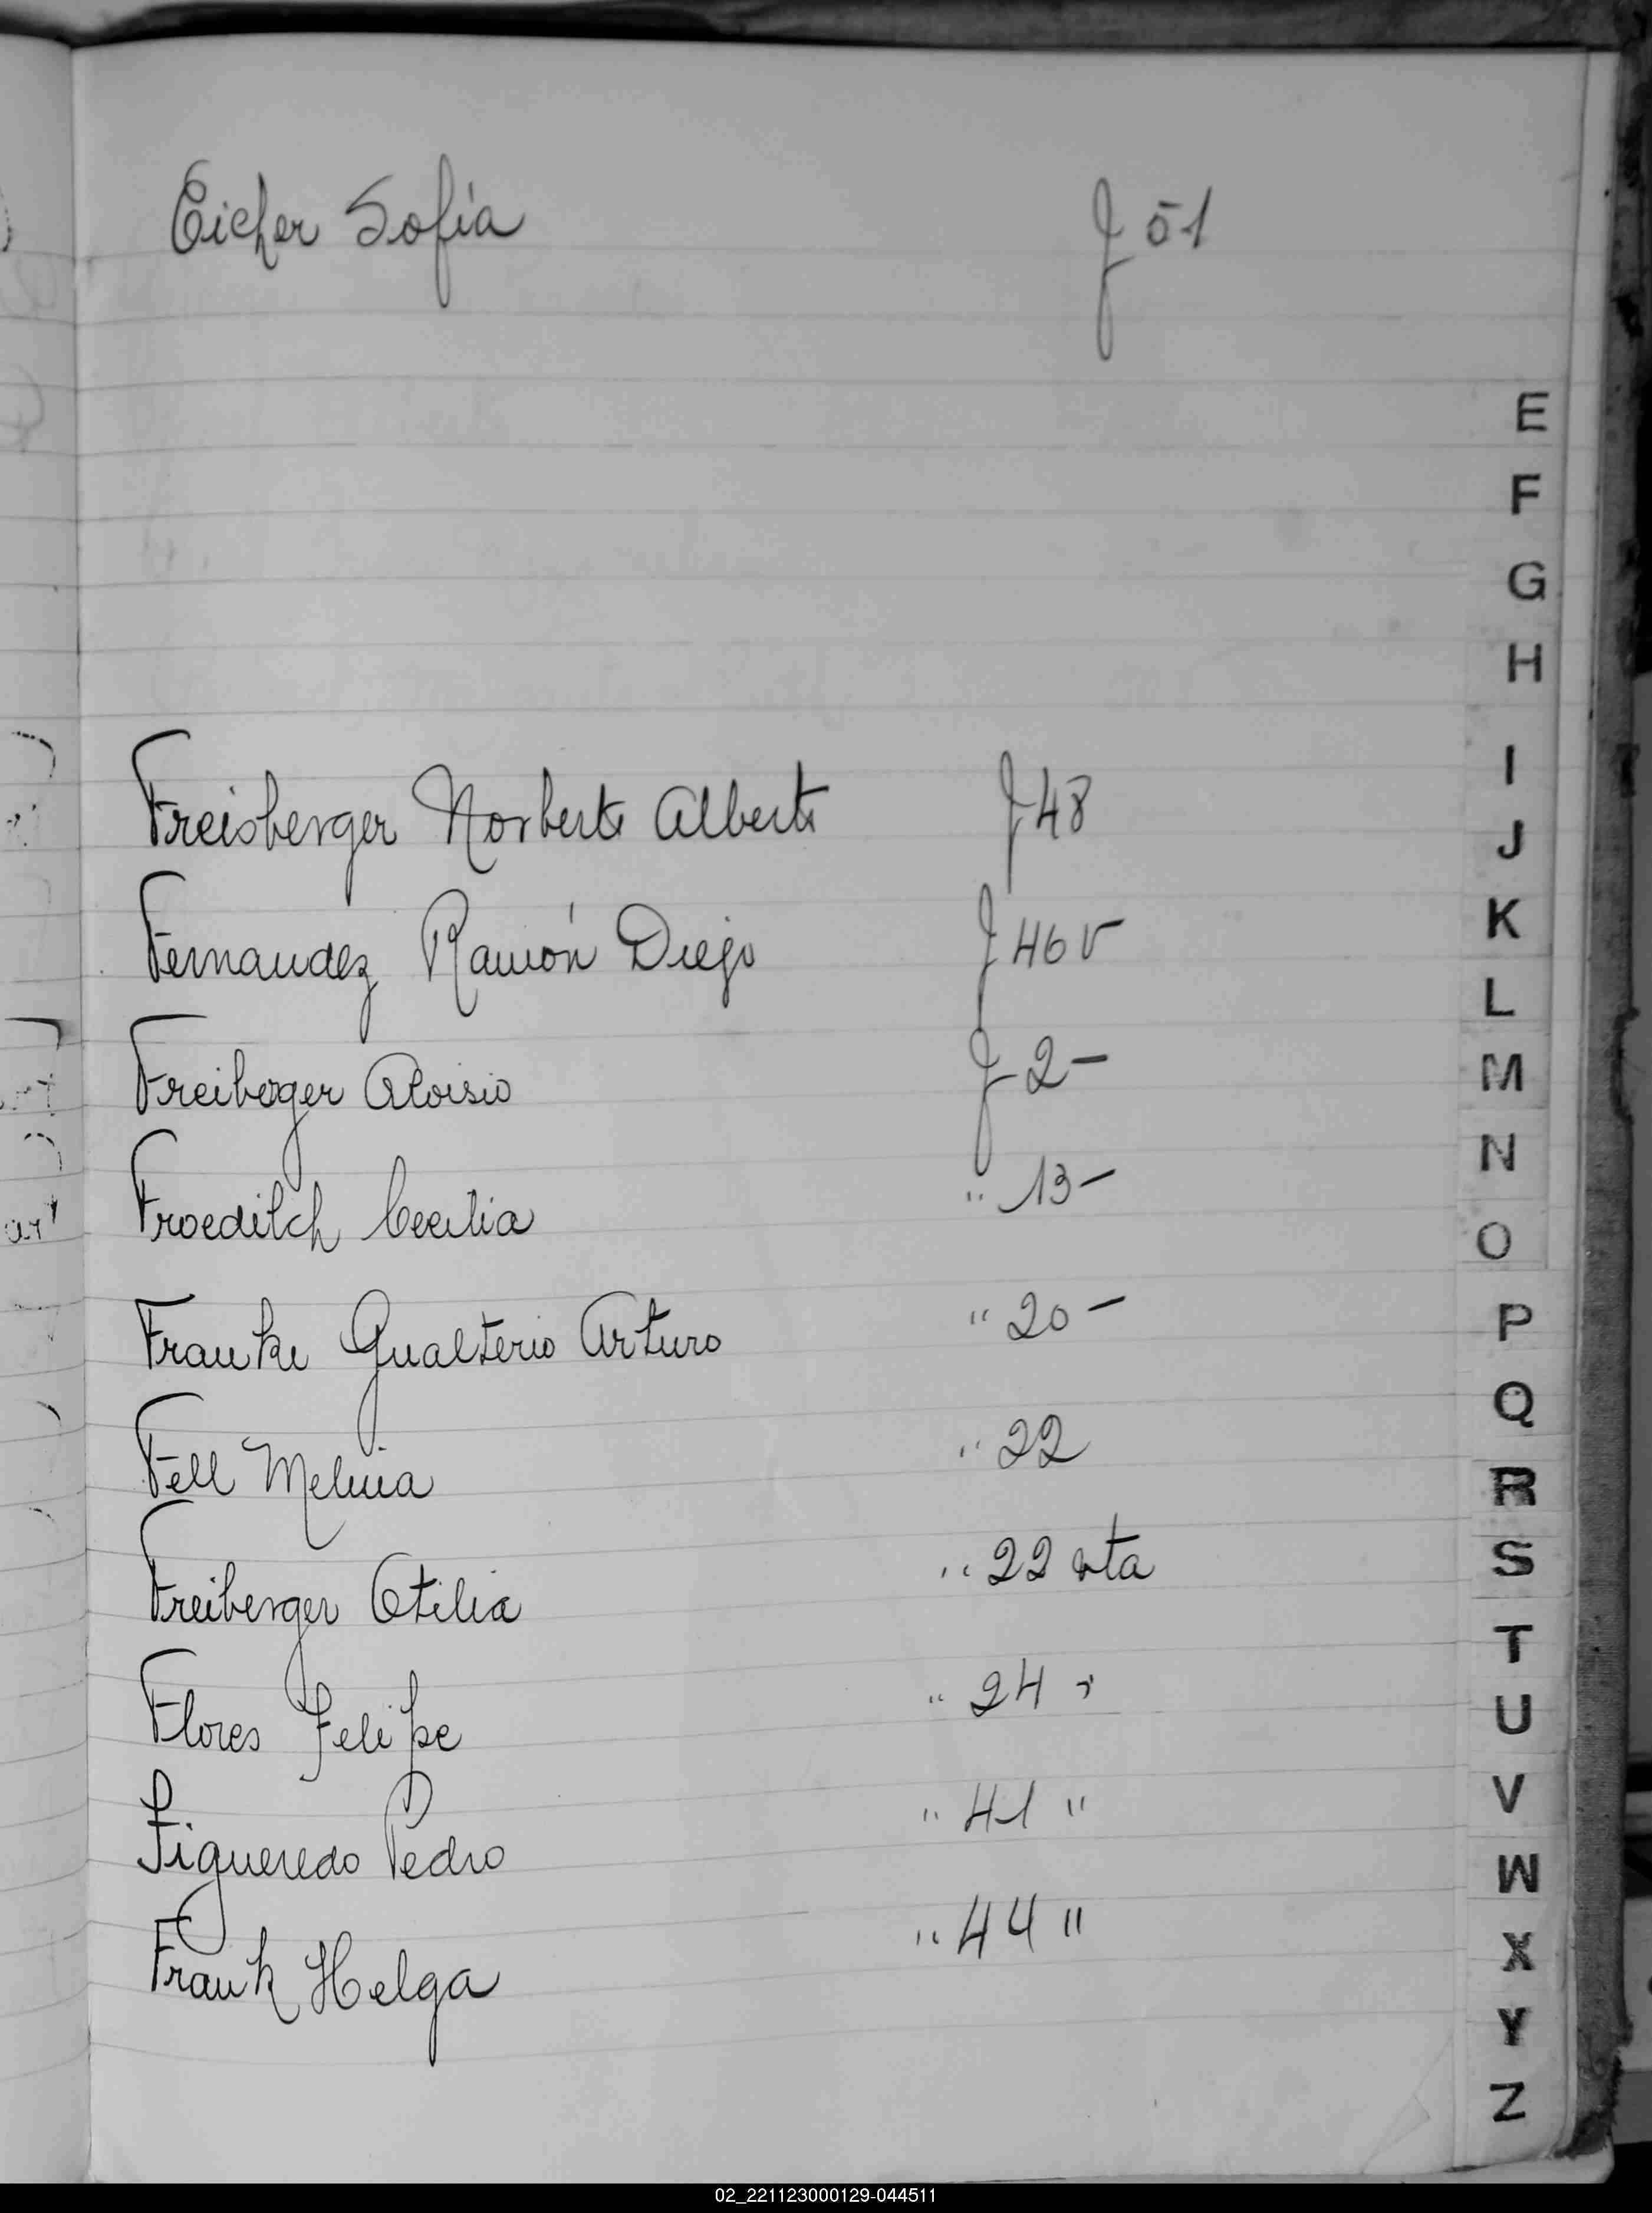 Eicher Sofía f 51
E
F
G
H
Freisberger Norberto Alberto f 48
I
J
Fernandez Ramón Diego f 46 v
K
L
Freiberger Aloisio f 2 –
M
Froedilch Cecilia " 13 –
N
O
Franke Gualterio Arturo " 20 –
P
Fell Melvia " 22
Q
R
Freiberger Otilia " 22 vta
S
Flores Felipe " 24 "
T
U
Figueredo Pedro " 41 "
V
W
Frank Helga " 44 "
X
Y
Z
02_221123000129-044511